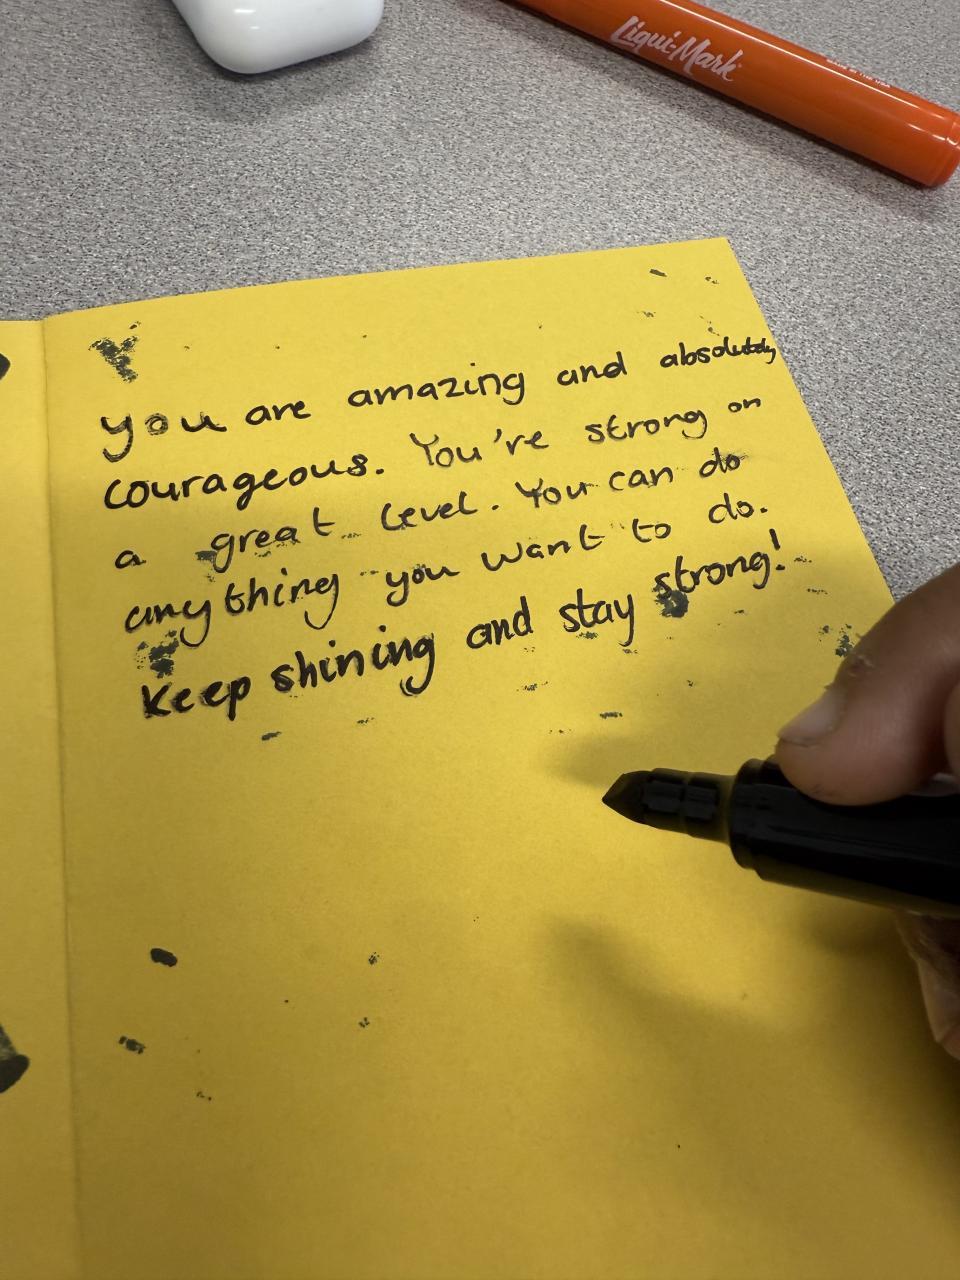 Liqui-Mark
MADE IN THE USA
you are amazing and absolutely
courageous. You're strong on
a great level. You can do
anything you want to do.
Keep shining and stay strong!